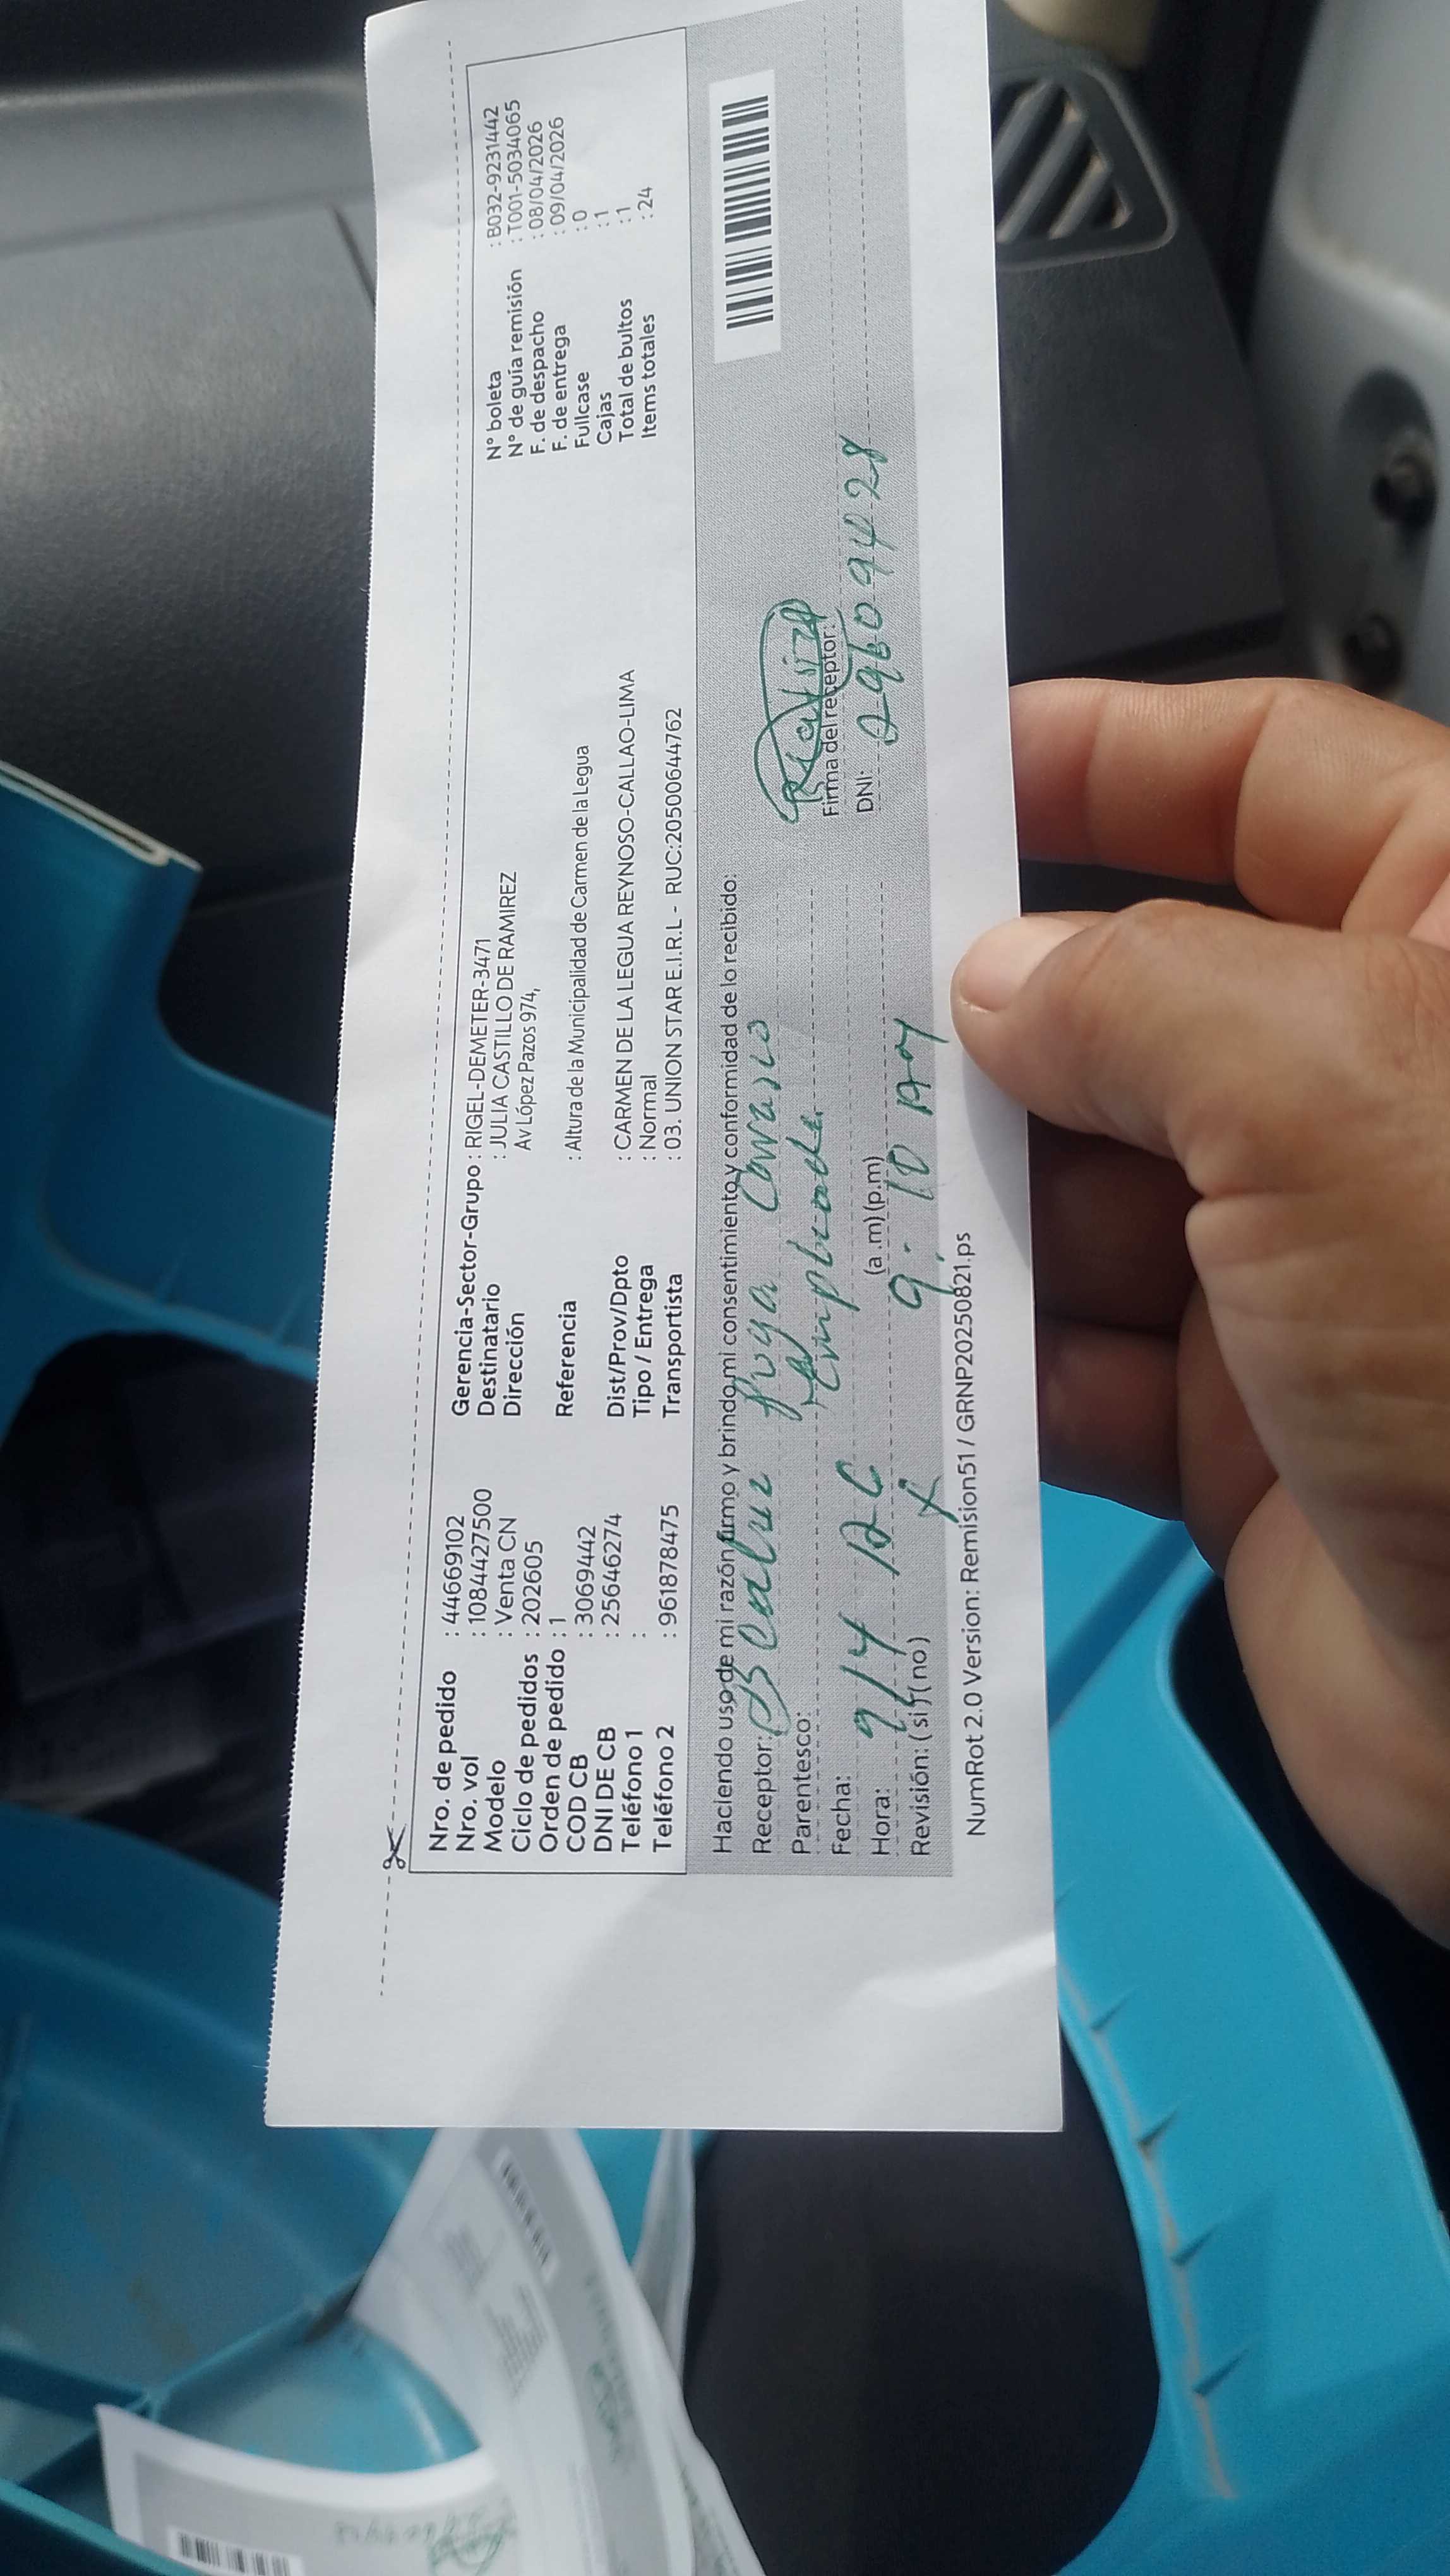 Nro. de pedido : 44669102
Nro. vol : 1084427500
Modelo : Venta CN
Ciclo de pedidos : 202605
Orden de pedido : 1
COD CB : 3069442
DNI DE CB : 25646274
Teléfono 1 :
Teléfono 2 : 961878475
Gerencia-Sector-Grupo : RIGEL-DEMETER-3471
Destinatario : JULIA CASTILLO DE RAMIREZ
Dirección Av López Pazos 974,
Referencia : Altura de la Municipalidad de Carmen de la Legua
Dist/Prov/Dpto : CARMEN DE LA LEGUA REYNOSO-CALLAO-LIMA
Tipo / Entrega : Normal
Transportista : 03. UNION STAR E.I.R.L - RUC:20500644762
N° boleta : B032-9231442
N° de guía remisión : T001-5034065
F. de despacho : 08/04/2026
F. de entrega : 09/04/2026
Fullcase : 0
Cajas : 1
Total de bultos : 1
Items totales : 24
Haciendo uso de mi razón firmo y brindo mi consentimiento y conformidad de lo recibido:
Receptor:
Parentesco:
Fecha: 9/4
Hora: (a.m) (p.m) 9:10 AM
Revisión: ( si ) ( no ) x
Firma del receptor:
DNI:
NumRot 2.0 Version: Remision51 / GRNP20250821.ps